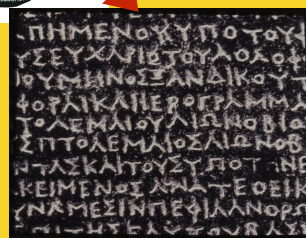 ΠΗΜΕΝΟΥΥΠΟΤΟΥ
ΥΣΕΥΧΑΡΙΣΤΟΥΑΘΛΟΦ
ΙΟΥΜΗΝΟΣΞΑΝΔΙΚΟΥ
ΦΟΡΑΙΚΑΙΙΕΡΟΓΡΑΜΜΑ
ΤΟΛΕΜΑΙΟΥΑΙΩΝΟΒΙΟ
ΣΠΤΟΛΕΜΑΙΟΣΑΙΩΝΟΒ
ΝΤΑΣΚΑΙΤΟΥΣΥΠΟΤ
ΚΕΙΜΕΝΟΣΑΝΑΤΕΘΕΙΚ
ΥΝΑΜΕΣΙΝΠΕΦΙΛΑΝΘΡΩ